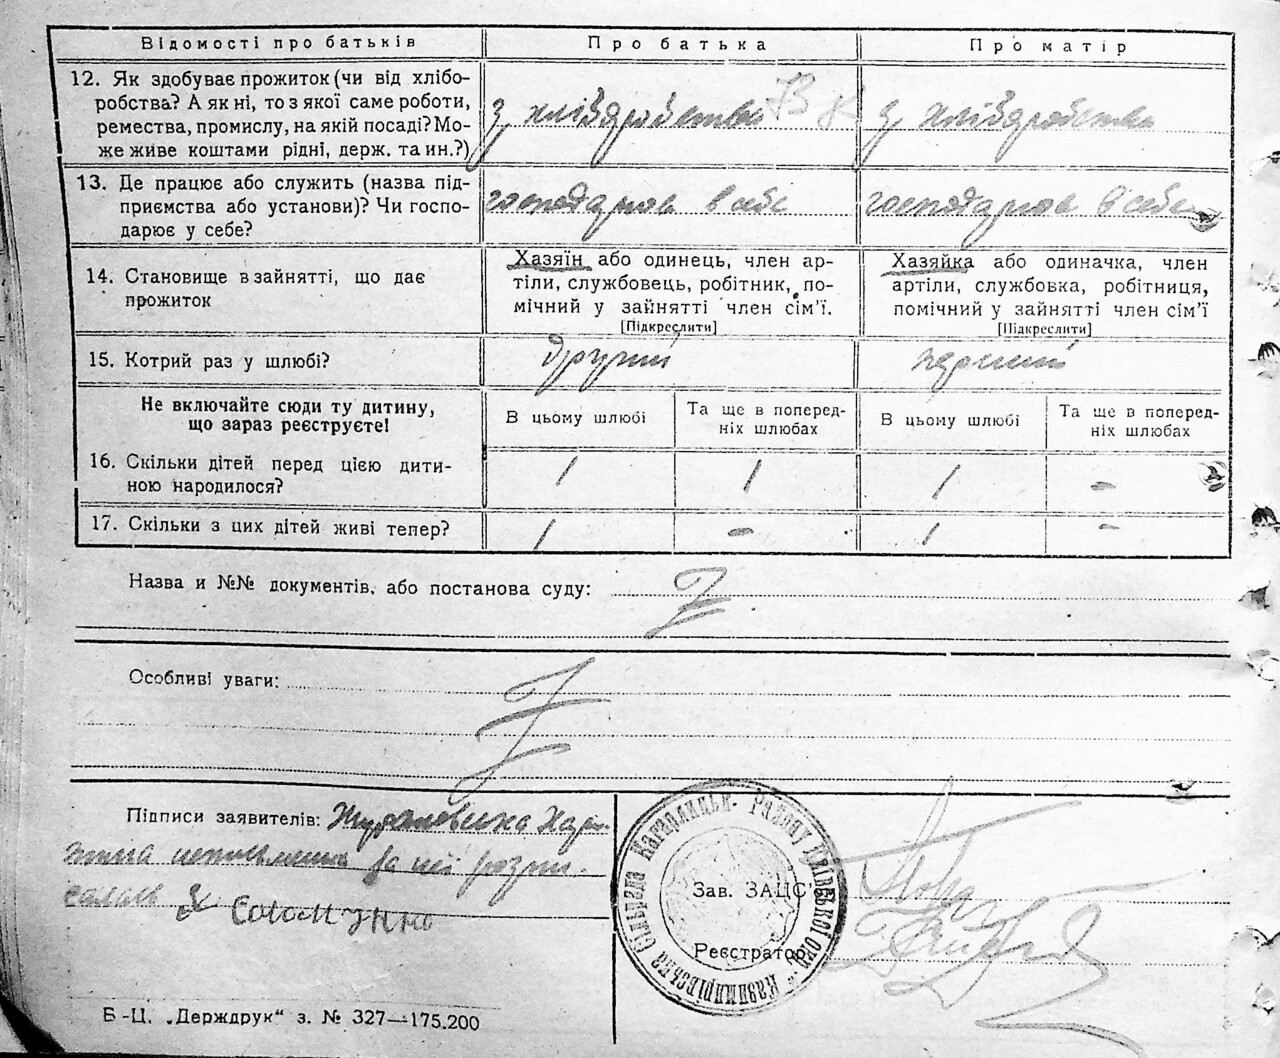 Відомості про батьків
Про батька
Про матір
12. Як здобуває прожиток (чи від хлібо-
робства? А як ні, то з якої саме роботи,
ремества, промислу, на якій посаді? Мо-
же живе коштами рідні, держ. та ин.?)
з хліборобства
з хліборобства
13. Де працює або служить (назва під-
приємства або установи)? Чи госпо-
дарює у себе?
господарює в себе
господарює в себе
14. Становище в зайнятті, що дає
прожиток
Хазяїн або одинець, член ар-
тіли, службовець, робітник, по-
мічний у зайнятті член сім'ї.
[Підкреслити]
Хазяйка або одиначка, член
артіли, службовка, робітниця,
помічний у зайнятті член сім'ї
[Підкреслити]
15. Котрий раз у шлюбі?
другий
перший
Не включайте сюди ту дитину,
що зараз реєструєте!
В цьому шлюбі
Та ще в поперед-
ніх шлюбах
В цьому шлюбі
Та ще в поперед-
ніх шлюбах
16. Скільки дітей перед цією дити-
ною народилося?
1
1
1
-
17. Скільки з цих дітей живі тепер?
1
-
1
-
Назва и №№ документів, або постанова суду:
Z
Особливі уваги:
Z
Підписи заявителів:
неписьменна за неї розпи-
сался
Зав. ЗАЦС'у
Реєстратор
Казимирівська Сільрада Кагарлицьк. Району Київської окр.
Б-Ц. „Держдрук“ з. № 327—175.200